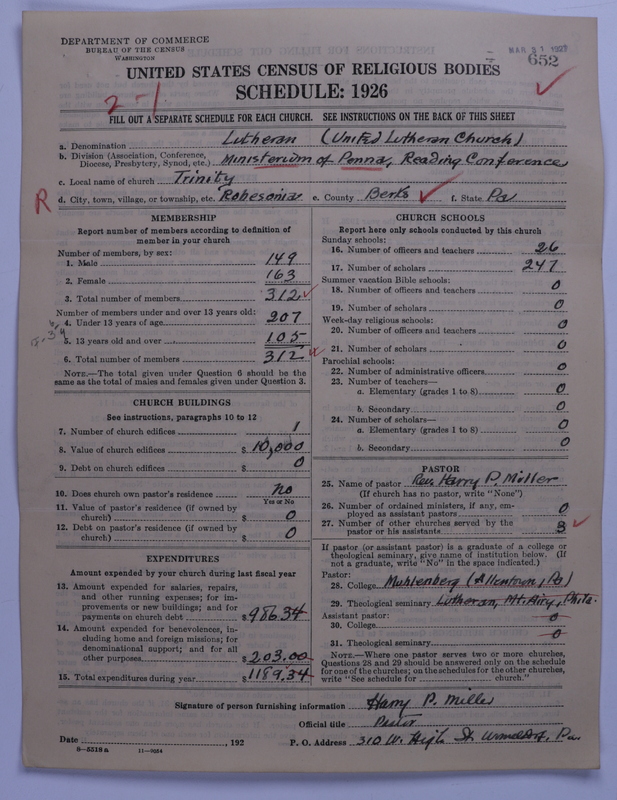 DEPARTMENT OF COMMERCE
BUREAU OF THE CENSUS
WASHINGTON
MAR 31 1927
652
UNITED STATES CENSUS OF RELIGIOUS BODIES
SCHEDULE: 1926
2-1
FILL OUT A SEPARATE SCHEDULE FOR EACH CHURCH. SEE INSTRUCTIONS ON THE BACK OF THIS SHEET
a. Denomination Lutheran (United Lutheran Church)
b. Division (Association, Conference, Diocese, Presbytery, Synod, etc.) Ministerium of Penna, Reading Conference
c. Local name of church Trinity
R
d. City, town, village, or township, etc. Robesonia e. County Berks f. State Pa
MEMBERSHIP
Report number of members according to definition of
member in your church
Number of members, by sex:
1. Male 149
2. Female 163
3. Total number of members 312
Number of members under and over 13 years old:
4. Under 13 years of age 207
5. 13 years old and over 105
6. Total number of members 312
NOTE.—The total given under Question 6 should be the
same as the total of males and females given under Question 3.
CHURCH BUILDINGS
See instructions, paragraphs 10 to 12
7. Number of church edifices 1
8. Value of church edifices $ 10,000
9. Debt on church edifices $ 0
10. Does church own pastor's residence no
Yes or No
11. Value of pastor's residence (if owned by
church) $ 0
12. Debt on pastor's residence (if owned by
church) $ 0
EXPENDITURES
Amount expended by your church during last fiscal year
13. Amount expended for salaries, repairs,
and other running expenses; for im-
provements or new buildings; and for
payments on church debt $ 986.34
14. Amount expended for benevolences, in-
cluding home and foreign missions; for
denominational support; and for all
other purposes $ 203.00
15. Total expenditures during year $ 1189.34
CHURCH SCHOOLS
Report here only schools conducted by this church
Sunday schools:
16. Number of officers and teachers 26
17. Number of scholars 247
Summer vacation Bible schools:
18. Number of officers and teachers 0
19. Number of scholars 0
Week-day religious schools:
20. Number of officers and teachers 0
21. Number of scholars 0
Parochial schools:
22. Number of administrative officers 0
23. Number of teachers—
a. Elementary (grades 1 to 8) 0
b. Secondary 0
24. Number of scholars—
a. Elementary (grades 1 to 8) 0
b. Secondary 0
PASTOR
25. Name of pastor Rev. Harry P. Miller
(If church has no pastor, write "None")
26. Number of ordained ministers, if any, em-
ployed as assistant pastors 0
27. Number of other churches served by the
pastor or his assistants 3
If pastor (or assistant pastor) is a graduate of a college or
theological seminary, give name of institution below. (If
not a graduate, write "No" in the space indicated.)
Pastor:
28. College Muhlenberg (Allentown, Pa)
29. Theological seminary Lutheran, Mt. Airy, Phila.
Assistant pastor: 0
30. College
31. Theological seminary 0
NOTE.—Where one pastor serves two or more churches,
Questions 28 and 29 should be answered only on the schedule
for one of the churches; on the schedules for the other churches,
write "See schedule for church."
Signature of person furnishing information Harry P. Miller
Official title Pastor
Date , 192 P. O. Address 310 W. High St. Womelsdorf, Pa.
8—5518 a 11—9054